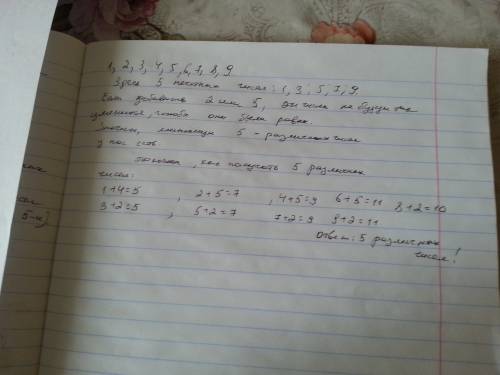 1, 2, 3, 4, 5, 6, 7, 8, 9
Здесь 5 нечетных чисел: 1, 3, 5, 7, 9
Если добавить 2 или 5, эти числа не будут так
изменятся, чтобы они были равны.
Значит, минимум 5 - различных чисел
у нас есть.
Покажем, как получить 5 различных
чисел:
1+4=5 , 2+5=7 , 4+5=9 6+5=11 8+2=10
3+2=5 , 5+2=7 7+2=9 9+2=11
Ответ: 5 различных
чисел!
5-и)